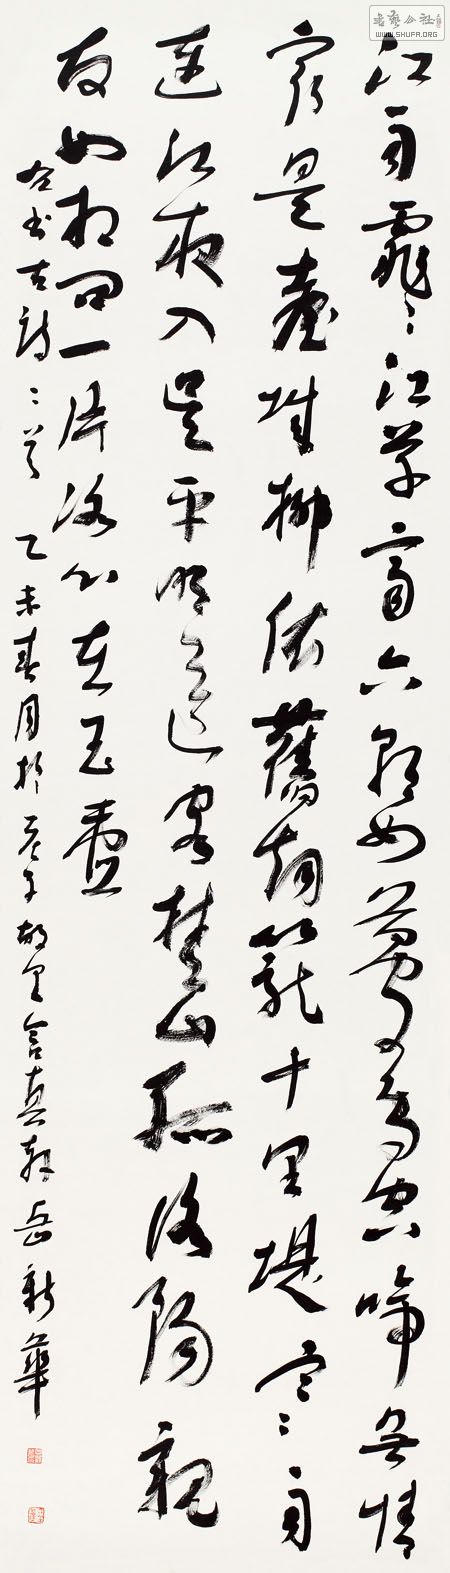 江雨霏霏江草齊六朝如夢鳥空啼無情
最是臺城柳依舊烟籠十里堤寒雨
連江夜入吳平明送客楚山孤洛陽親
友如相問一片冰心在玉壺
右書古詩二首乙未春月於老子故里 岳新華
书艺公社
WWW.SHUFA.ORG